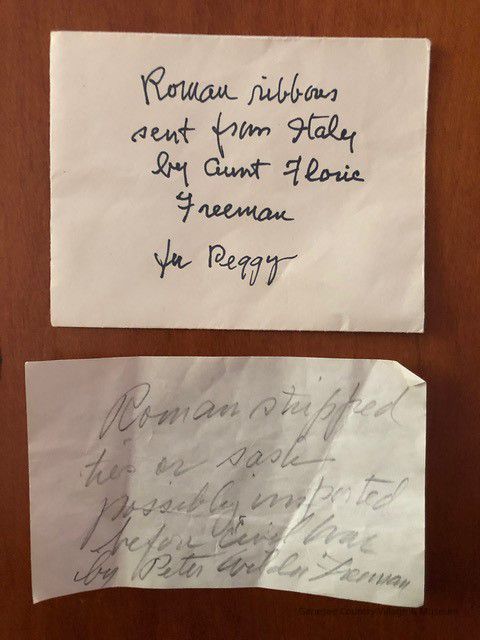 Roman ribbons
sent from Italy
by Aunt Florie
Freeman
for Peggy
Roman stripped
ties or sash
possibly imported
before Civil War
by Peter Wilder Freeman
Genesee Country Village & Museum